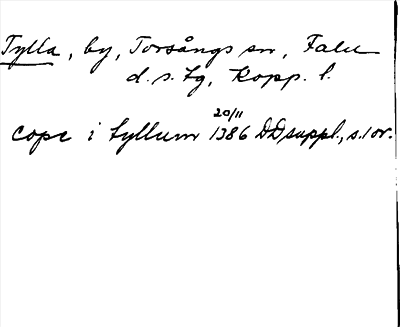 Tylla, by, Torsångs sn, Falu
d.s. tg, Kopp. l.
20/11
cope i tyllum 1386 DD suppl., s. 1 or.